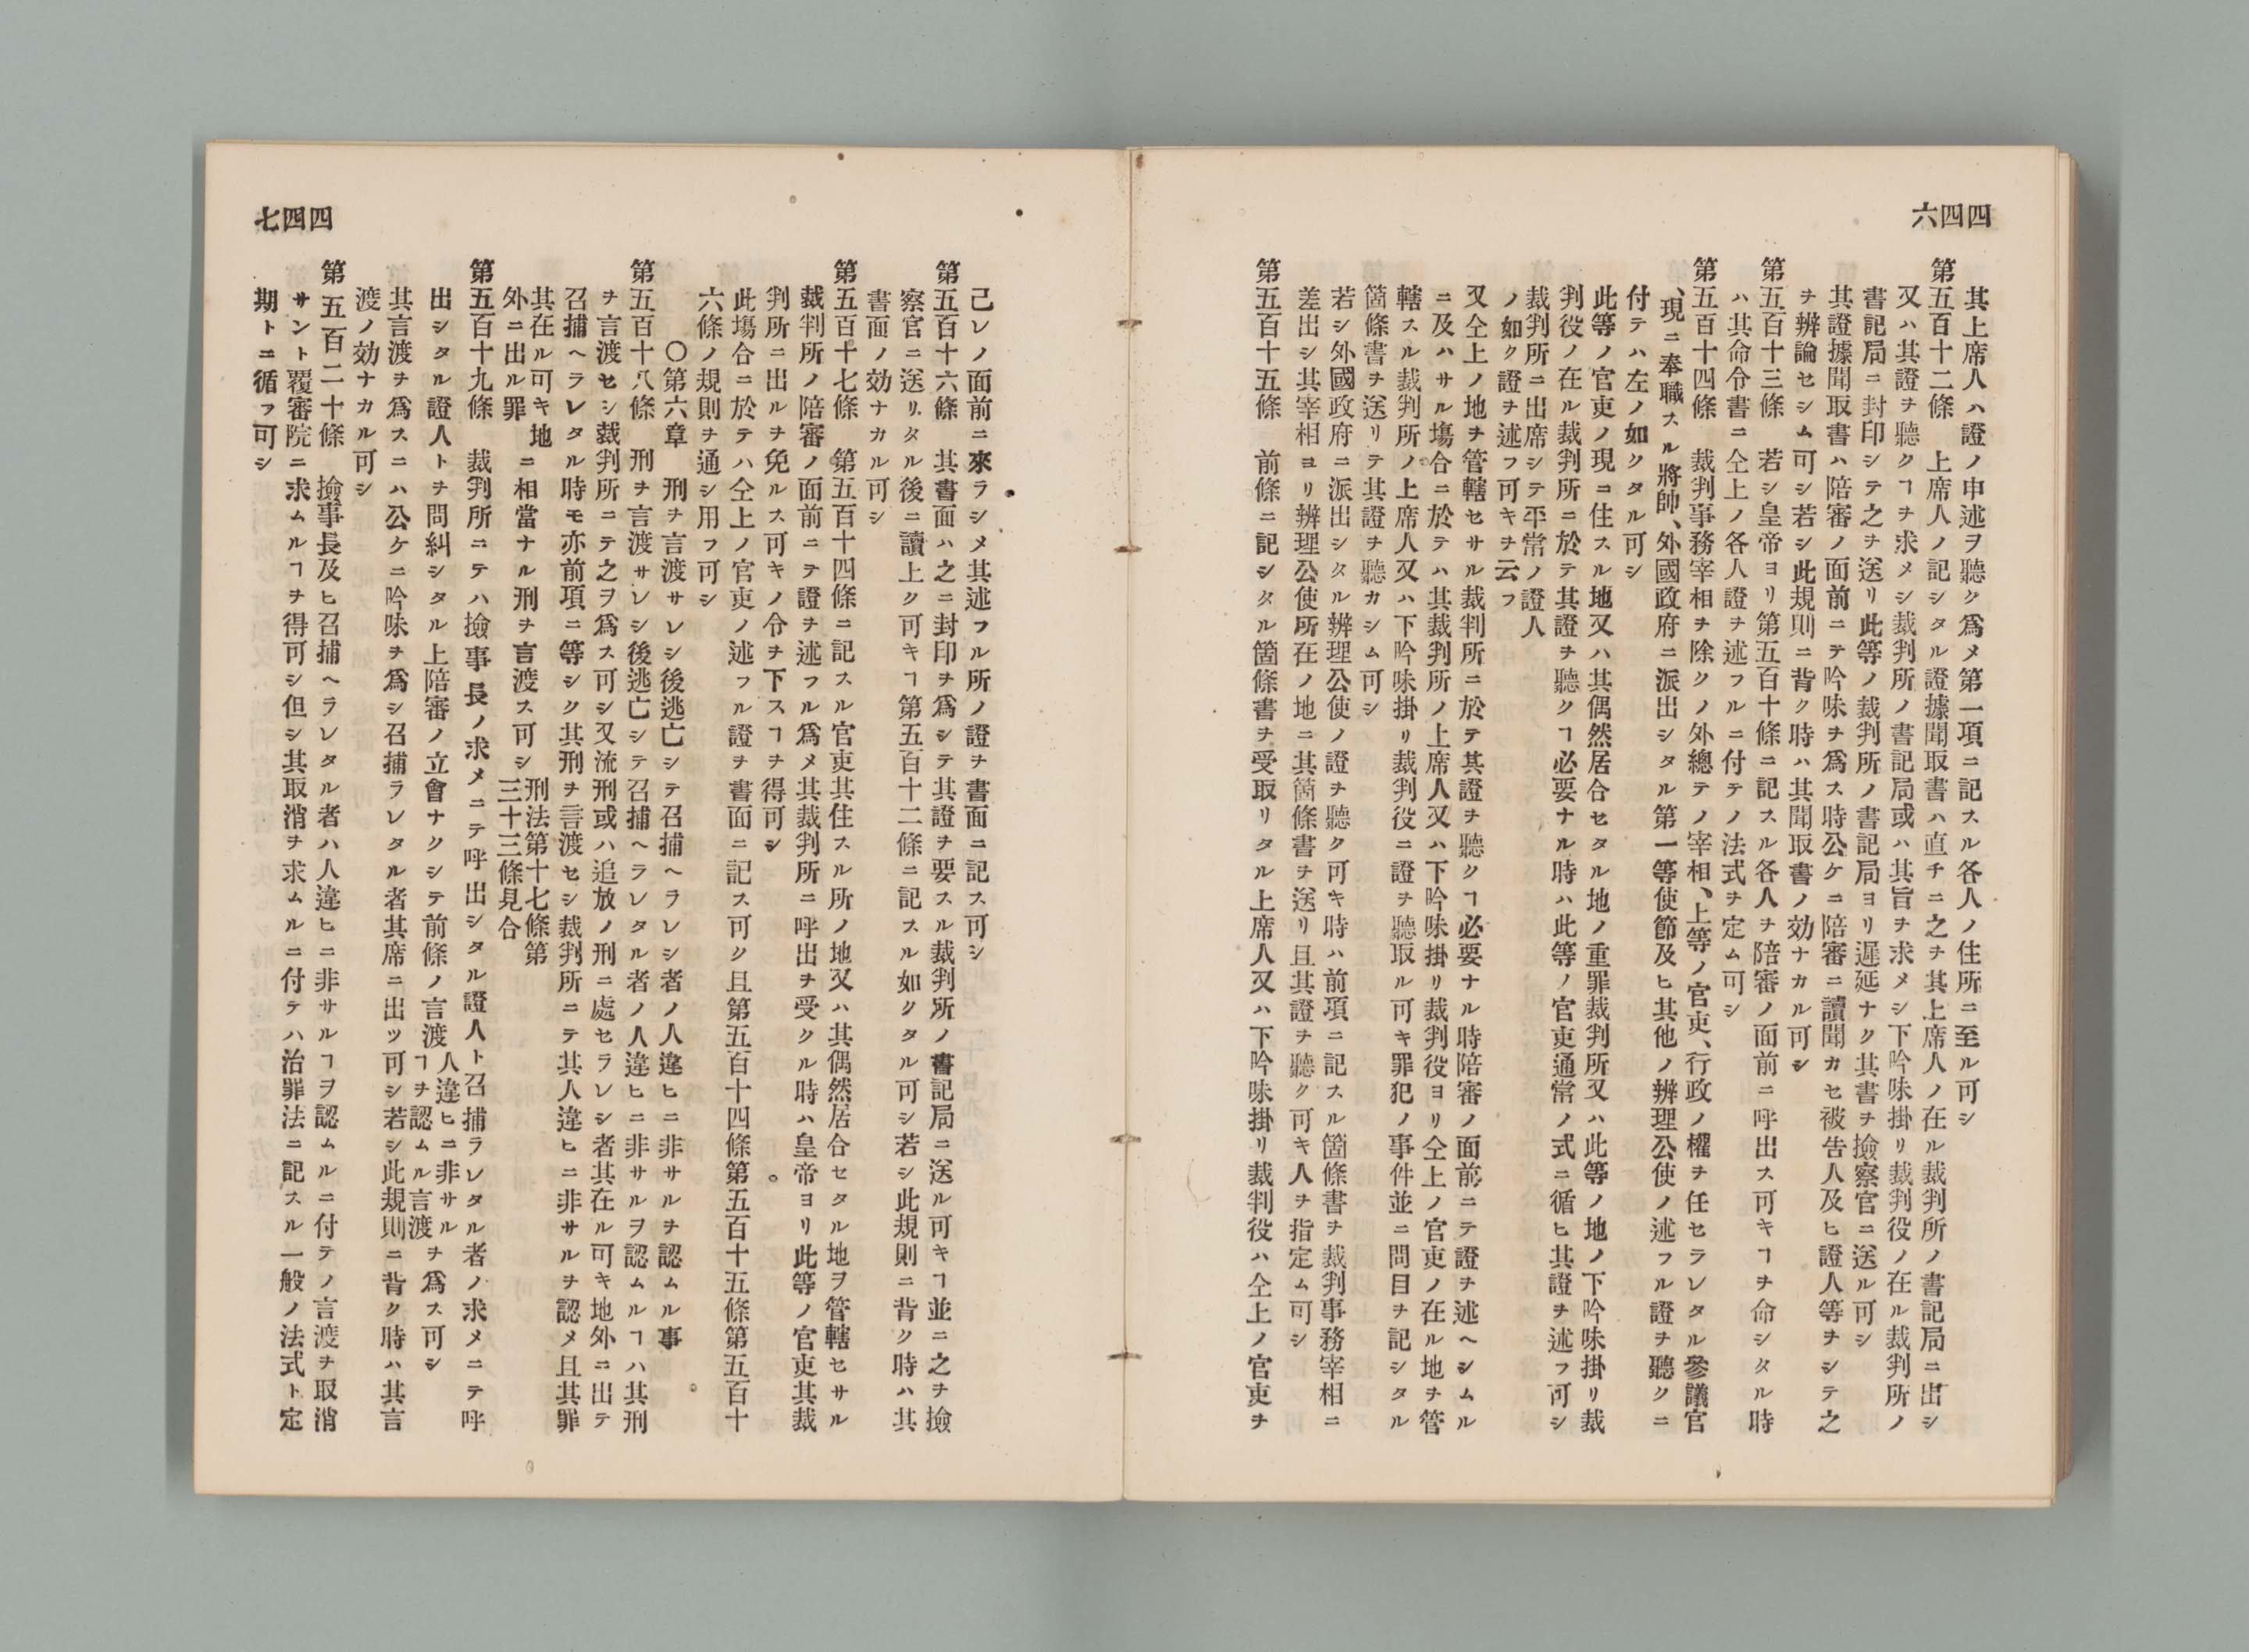 四四六
其上席人ハ證ノ申述ヲ聽ク爲メ第一項ニ記スル各人ノ住所ニ至ル可シ
第五百十二條　上席人ノ記シタル證據聞取書ハ直チニ之ヲ其上席人ノ在ル裁判所ノ書記局ニ出シ
又ハ其證ヲ聽クヿヲ求メシ裁判所ノ書記局或ハ其旨ヲ求メシ下吟味掛リ裁判役ノ在ル裁判所ノ
書記局ニ封印シテ之ヲ送リ此等ノ裁判所ノ書記局ヨリ遲延ナク其書ヲ撿察官ニ送ル可シ
其證據聞取書ハ陪審ノ面前ニテ吟味ヲ爲ス時公ケニ陪審ニ讀聞カセ被告人及ヒ證人等ヲシテ之
ヲ辨論セシム可シ若シ此規則ニ背ク時ハ其聞取書ノ効ナカル可シ
第五百十三條　若シ皇帝ヨリ第五百十條ニ記スル各人ヲ陪審ノ面前ニ呼出ス可キヿヲ命シタル時
ハ其命令書ニ仝上ノ各人證ヲ述フルニ付テノ法式ヲ定ム可シ
第五百十四條　裁判事務宰相ヲ除クノ外總テノ宰相、上等ノ官吏、行政ノ權ヲ任セラレタル參議官
、現ニ奉職スル將帥、外國政府ニ派出シタル第一等使節及ヒ其他ノ辨理公使ノ述フル證ヲ聽クニ
付テハ左ノ如クタル可シ
此等ノ官吏ノ現コ住スル地又ハ其偶然居合セタル地ノ重罪裁判所又ハ此等ノ地ノ下吟味掛リ裁
判役ノ在ル裁判所ニ於テ其證ヲ聽クヿ必要ナル時ハ此等ノ官吏通常ノ式ニ循ヒ其證ヲ述フ可シ
裁判所ニ出席シテ平常ノ證人
ノ如ク證ヲ述フ可キヲ云フ
又仝上ノ地ヲ管轄セサル裁判所ニ於テ其證ヲ聽クヿ必要ナル時陪審ノ面前ニテ證ヲ述ヘシムル
ニ及ハサル塲合ニ於テハ其裁判所ノ上席人又ハ下吟味掛リ裁判役ヨリ仝上ノ官吏ノ在ル地ヲ管
轄スル裁判所ノ上席人又ハ下吟味掛リ裁判役ニ證ヲ聽取ル可キ罪犯ノ事件並ニ問目ヲ記シタル
箇條書ヲ送リテ其證ヲ聽カシム可シ
若シ外國政府ニ派出シタル辨理公使ノ證ヲ聽ク可キ時ハ前項ニ記スル箇條書ヲ裁判事務宰相ニ
差出シ其宰相ヨリ辨理公使所在ノ地ニ其箇條書ヲ送リ且其證ヲ聽ク可キ人ヲ指定ム可シ
第五百十五條　前條ニ記シタル箇條書ヲ受取リタル上席人又ハ下吟味掛リ裁判役ハ仝上ノ官吏ヲ
四四七
己レノ面前ニ來ラシメ其述フル所ノ證ヲ書面ニ記ス可シ
第五百十六條　其書面ハ之ニ封印ヲ爲シテ其證ヲ要スル裁判所ノ書記局ニ送ル可キヿ並ニ之ヲ撿
察官ニ送リタル後ニ讀上ク可キヿ第五百十二條ニ記スル如クタル可シ若シ此規則ニ背ク時ハ其
書面ノ効ナカル可シ
第五百十七條　第五百十四條ニ記スル官吏其住スル所ノ地又ハ其偶然居合セタル地ヲ管轄セサル
裁判所ノ陪審ノ面前ニテ證ヲ述フル爲メ其裁判所ニ呼出ヲ受クル時ハ皇帝ヨリ此等ノ官吏其裁
判所ニ出ルヲ免ルス可キノ令ヲ下スヿヲ得可シ
此塲合ニ於テハ仝上ノ官吏ノ述フル證ヲ書面ニ記ス可ク且第五百十四條第五百十五條第五百十
六條ノ規則ヲ通シ用フ可シ
〇第六章　刑ヲ言渡サレシ後逃亡シテ召捕ヘラレシ者ノ人違ヒニ非サルヲ認ムル事
第五百十八條　刑ヲ言渡サレシ後逃亡シテ召捕ヘラレタル者ノ人違ヒニ非サルヲ認ムルヿハ其刑
ヲ言渡セシ裁判所ニテ之ヲ爲ス可シ又流刑或ハ追放ノ刑ニ處セラレシ者其在ル可キ地外ニ出テ
召捕ヘラレタル時モ亦前項ニ等シク其刑ヲ言渡セシ裁判所ニテ其人違ヒニ非サルヲ認メ且其罪
其在ル可キ地
外ニ出ル罪
ニ相當ナル刑ヲ言渡ス可シ
刑法第十七條第
三十三條見合
第五百十九條　裁判所ニテハ撿事長ノ求メニテ呼出シタル證人ト召捕ラレタル者ノ求メニテ呼
出シタル證人トヲ問糾シタル上陪審ノ立會ナクシテ前條ノ言渡
人違ヒニ非サル
ヿヲ認ムル言渡
ヲ爲ス可シ
其言渡ヲ爲スニハ公ケニ吟味ヲ爲シ召捕ラレタル者其席ニ出ツ可シ若シ此規則ニ背ク時ハ其言
渡ノ効ナカル可シ
第五百二十條　撿事長及ヒ召捕ヘラレタル者ハ人違ヒニ非サルヿヲ認ムルニ付テノ言渡ヲ取消
サント覆審院ニ求ムルヿヲ得可シ但シ其取消ヲ求ムルニ付テハ治罪法ニ記スル一般ノ法式ト定
期トニ循フ可シ